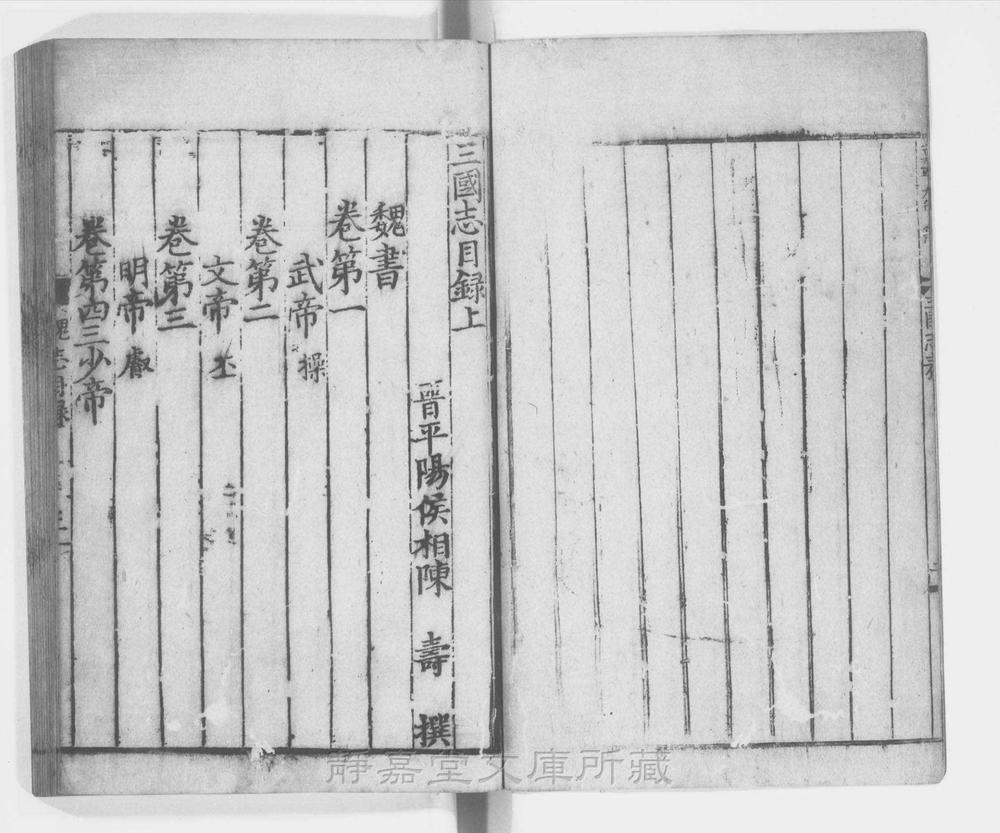 三國志目録上
晉平陽侯相陳 壽 撰
魏書
卷第一
武帝 操
卷第二
文帝 丕
卷第三
明帝 叡
卷第四三少帝
靜嘉堂文庫所藏